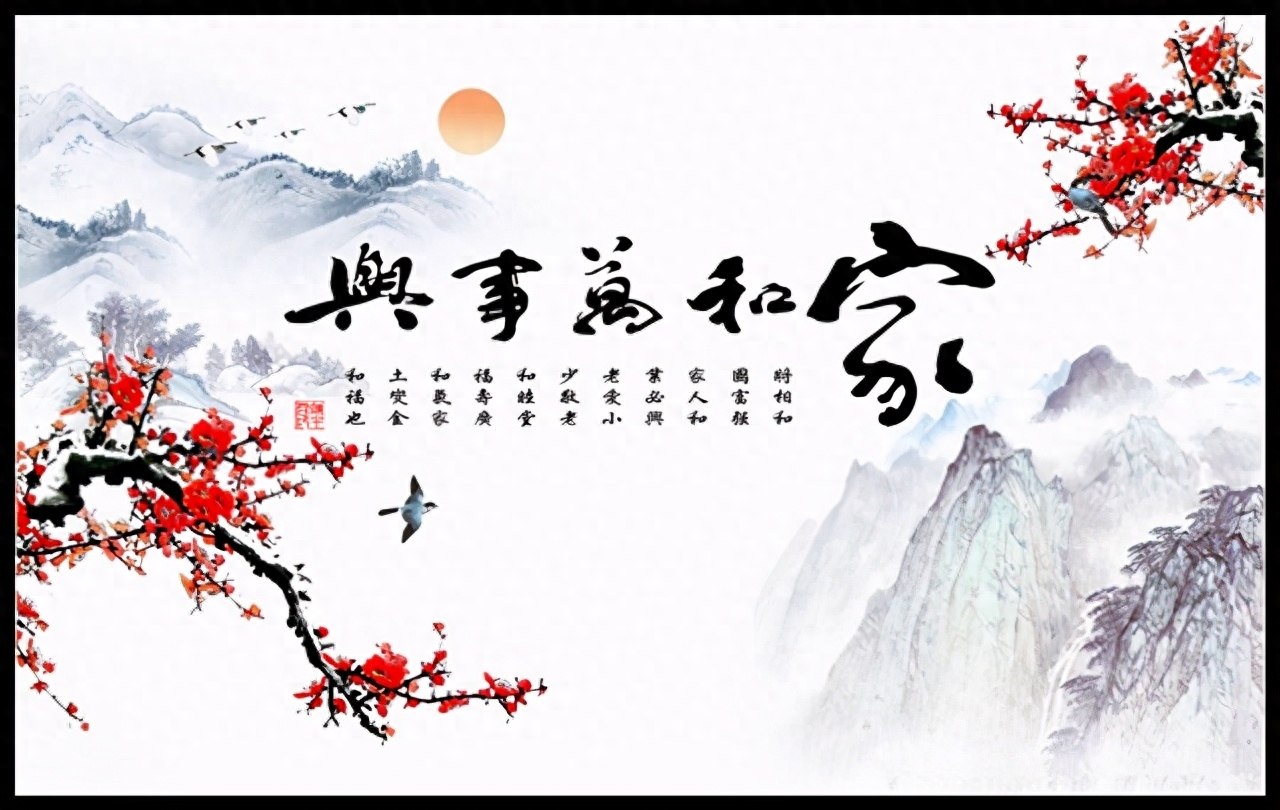 家和萬事興
將相和
國富强
家人和
業必興
老愛小
少敬老
和睦堂
福壽廣
和爲家
土變金
和福也